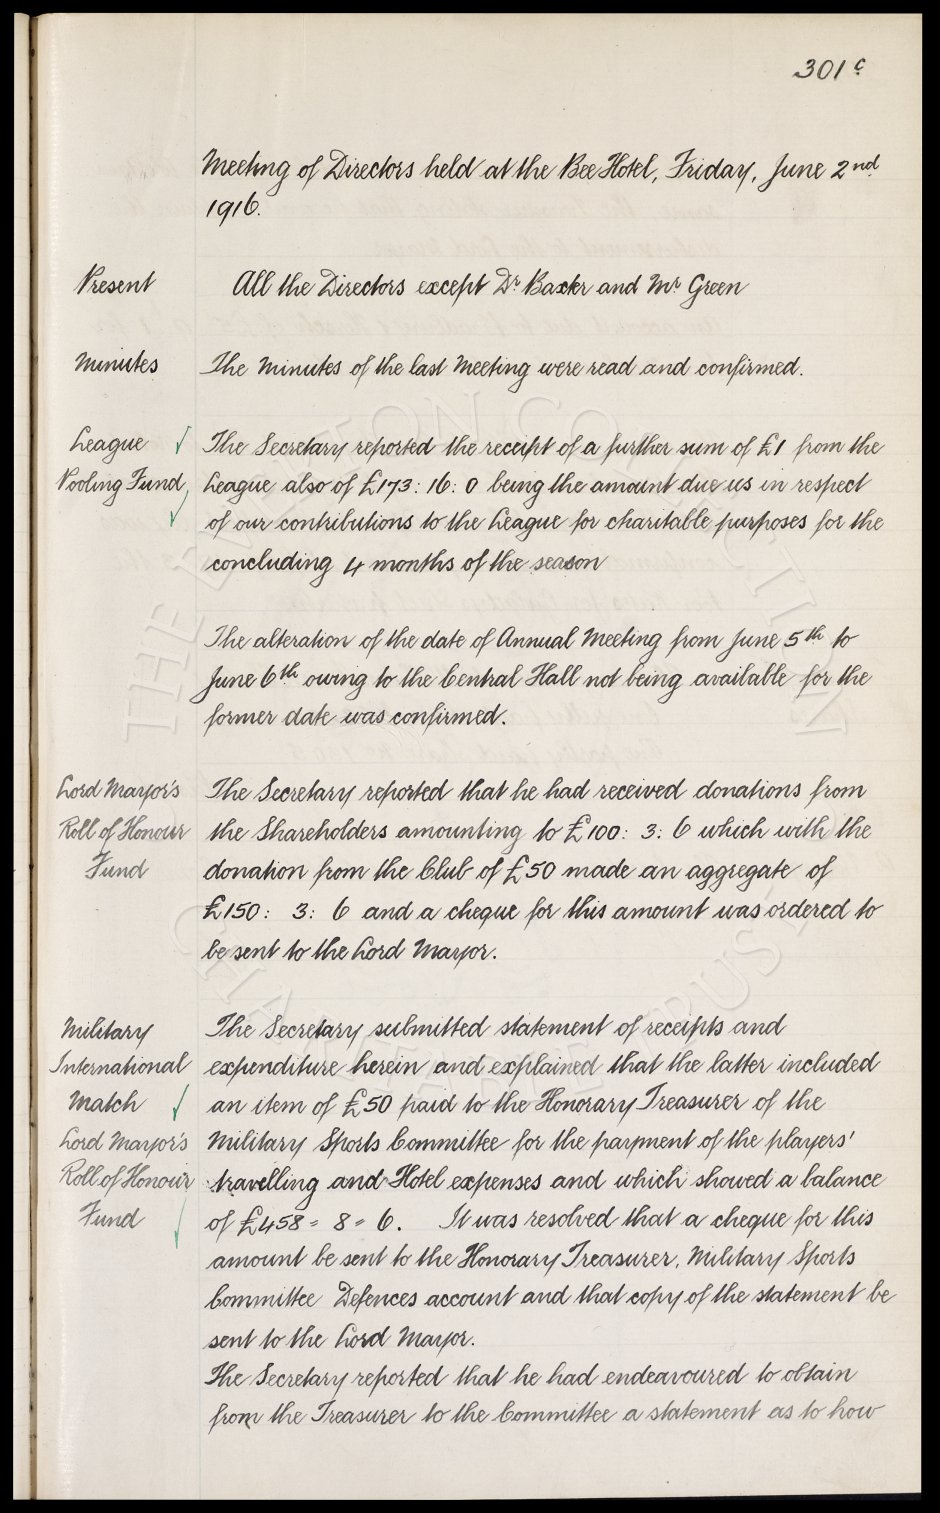 301c
Meeting of Directors held at the Bee Hotel, Friday, June 2nd
1916.
Present
All the Directors except Dr Baxter and Mr Green
Minutes
The Minutes of the last Meeting were read and confirmed.
League
Pooling Fund
The Secretary reported the receipt of a further sum of £1 from the
League also of £173: 16: 0 being the amount due us in respect
of our contributions to the League for charitable purposes for the
concluding 4 months of the season
The alteration of the date of Annual Meeting from June 5th to
June 6th owing to the Central Hall not being available for the
former date was confirmed.
Lord Mayor's
Roll of Honour
Fund
The Secretary reported that he had received donations from
the Shareholders amounting to £100: 3: 6 which with the
donation from the Club of £50 made an aggregate of
£150: 3: 6 and a cheque for this amount was ordered to
be sent to the Lord Mayor.
Military
International
Match
Lord Mayor's
Roll of Honour
Fund
The Secretary submitted statement of receipts and
expenditure herein and explained that the latter included
an item of £50 paid to the Honorary Treasurer of the
Military Sports Committee for the payment of the players'
travelling and Hotel expenses and which showed a balance
of £458 = 8 = 6. It was resolved that a cheque for this
amount be sent to the Honorary Treasurer, Military Sports
Committee Defences account and that copy of the statement be
sent to the Lord Mayor.
The Secretary reported that he had endeavoured to obtain
from the Treasurer to the Committee a statement as to how
THE EVERTON COLLECTION
CHARITABLE TRUST